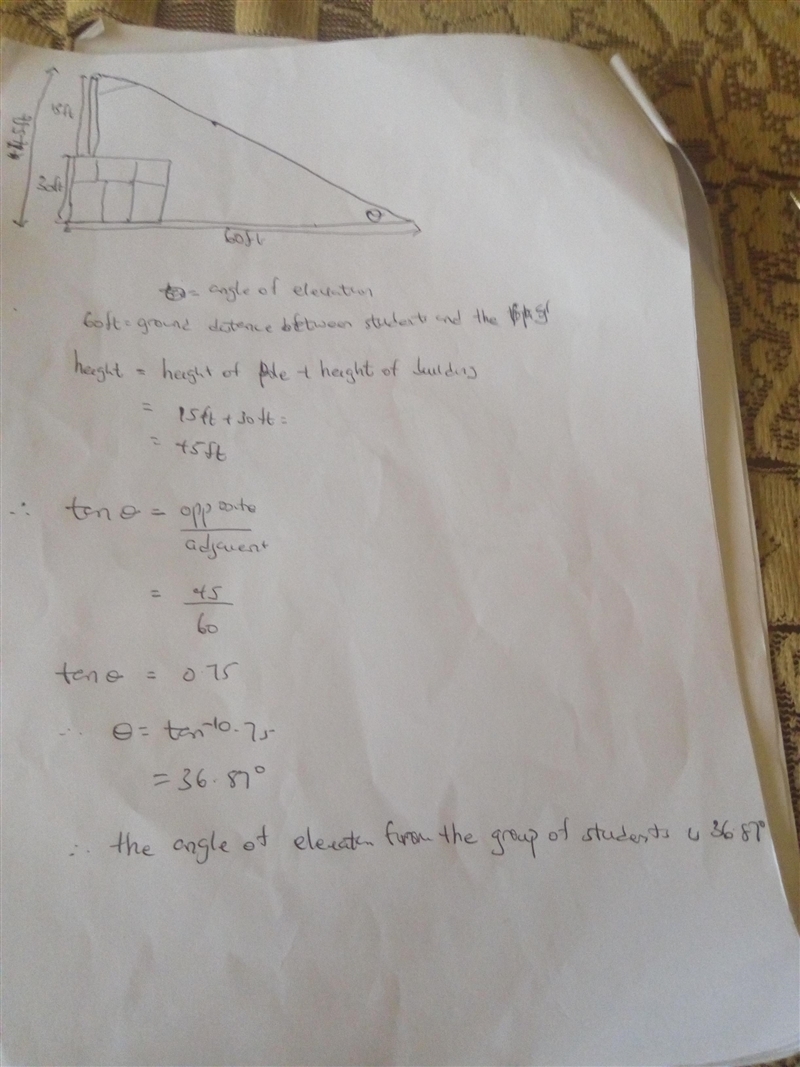 15ft
45ft
30ft
θ
60ft
θ = angle of elevation
60ft = ground distence between students and the
height = height of Pole + height of building
= 15ft + 30ft =
= 45ft
∴ tan θ = opposite
adjacent
= 45
60
tan θ = 0.75
∴ θ = tan⁻¹0.75
= 36.87°
∴ the angle of elevation from the group of students is 36.87°